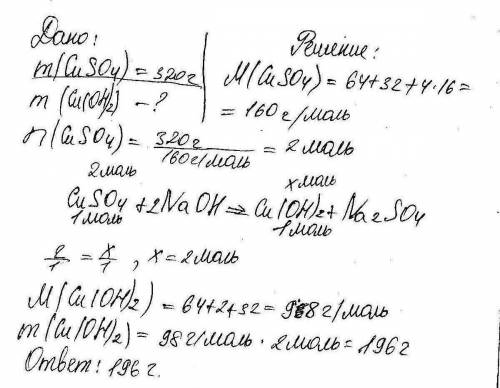 Дано:
m(CuSO4) = 320г
m(Cu(OH)2) - ?
Решение:
M(CuSO4) = 64+32+4·16=
= 160г/моль
n(CuSO4) = 320г / 160г/моль = 2моль
2моль x моль
CuSO4 + 2NaOH ⇒ Cu(OH)2 + Na2SO4
1моль 1моль
2/1 = x/1 , x = 2моль
M(Cu(OH)2) = 64+2+32 = 98г/моль
m(Cu(OH)2) = 98г/моль · 2моль = 196г
Ответ: 196г.